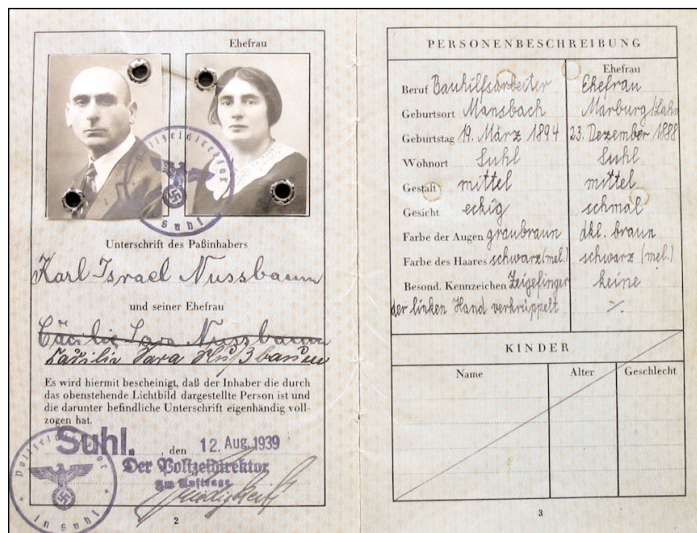 Ehefrau
Polizeidirektor
Suhl
Unterschrift des Paßinhabers
Karl Israel Nussbaum
und seiner Ehefrau
Cäcilie Sara Nussbaum
Cäcilia Sara Nußbaum
Es wird hiermit bescheinigt, daß der Inhaber die durch
das obenstehende Lichtbild dargestellte Person ist und
die darunter befindliche Unterschrift eigenhändig voll-
zogen hat.
Suhl. , den 12. Aug. 1939
Der Polizeidirektor
Im Auftrage
Polizeidirektor
in Suhl
2
PERSONENBESCHREIBUNG
Ehefrau
Beruf Bauhilfsarbeiter Ehefrau
Geburtsort Mansbach Marburg/Lahn
Geburtstag 19. März 1894 23. Dezember 1888
Wohnort Suhl Suhl
Gestalt mittel mittel
Gesicht eckig schmal
Farbe der Augen graubraun dkl. braun
Farbe des Haares schwarz (mel.) schwarz (mel.)
Besond. Kennzeichen Zeigefinger keine
der linken Hand verkrüppelt %.
KINDER
Name Alter Geschlecht
3